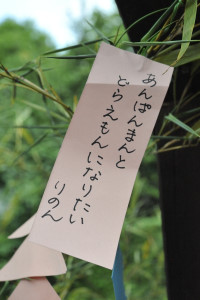 あんぱんまんと
どらえもんになりたい
りのん